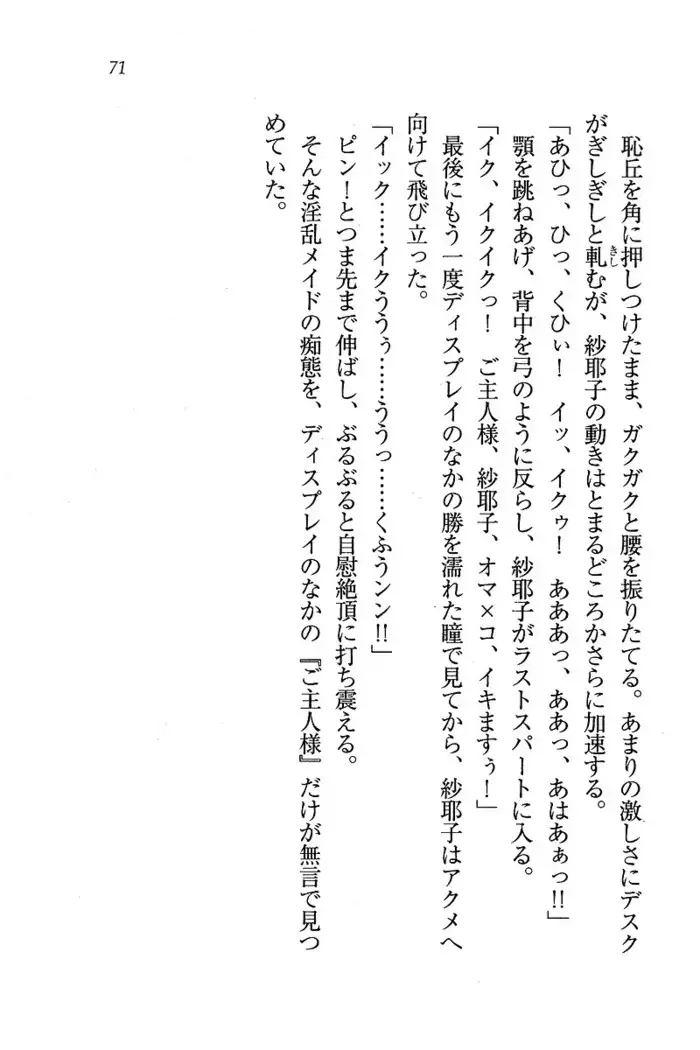 71
恥丘を角に押しつけたまま、ガクガクと腰を振りたてる。あまりの激しさにデスク
がぎしぎしと軋むが、紗耶子の動きはとまるどころかさらに加速する。
きし
「あひっ、ひっ、くひぃ！　イッ、イクゥ！　あああっ、ああっ、あはあぁっ!!」
顎を跳ねあげ、背中を弓のように反らし、紗耶子がラストスパートに入る。
「イク、イクイクっ！　ご主人様、紗耶子、オマ×コ、イキますぅ！」
最後にもう一度ディスプレイのなかの勝を濡れた瞳で見てから、紗耶子はアクメへ
向けて飛び立った。
「イック……イクううぅ……ううっ……くふうンン!!」
ピン！とつま先まで伸ばし、ぶるぶると自慰絶頂に打ち震える。
そんな淫乱メイドの痴態を、ディスプレイのなかの『ご主人様』だけが無言で見つ
めていた。